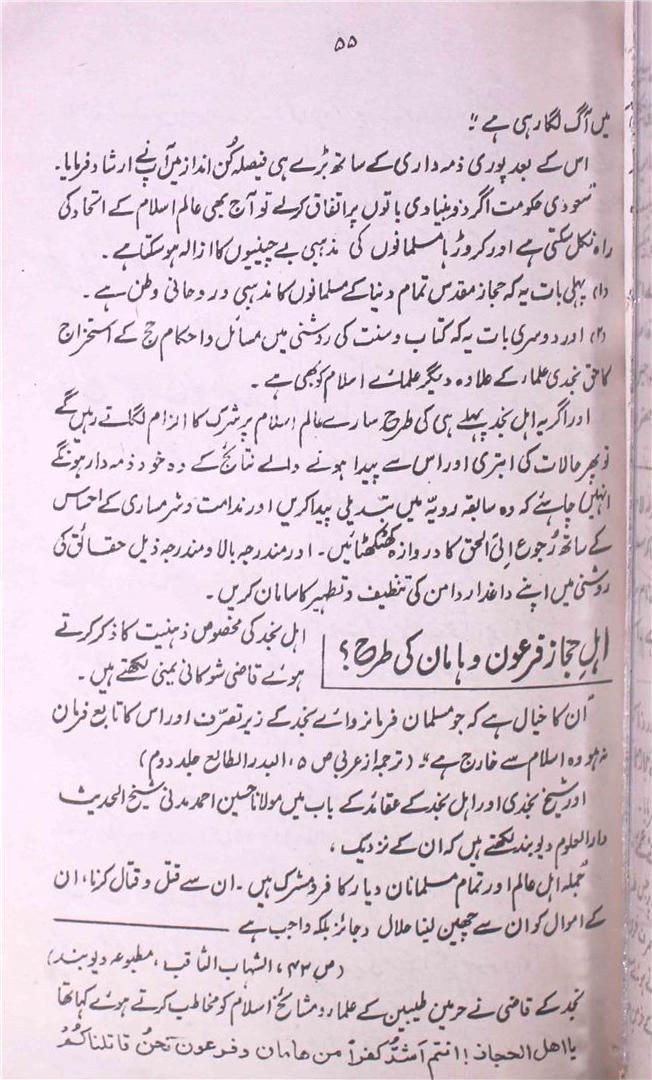 ۵۵
میں آگ لگا رہی ہے "۔
اس کے بعد پوری ذمہ داری کے ساتھ بڑے ہی فیصلہ کُن انداز میں آپ نے ارشاد فرمایا۔
"سعودی حکومت اگر دو بنیادی باتوں پر اتفاق کرلے تو آج بھی عالم اسلام کے اتحاد کی
راہ نکل سکتی ہے اور کروڑہا مسلمانوں کی مذہبی بے چینیوں کا ازالہ ہو سکتا ہے ۔
(۱) پہلی بات یہ کہ حجاز مقدس تمام دنیا کے مسلمانوں کا مذہبی و روحانی وطن ہے ۔
(۲) اور دوسری بات یہ کہ کتاب و سنت کی روشنی میں مسائل و احکام حج کے استخراج
کا حق نجدی علماء کے علاوہ دیگر علمائے اسلام کو بھی ہے ۔
اور اگر یہ اہل نجد پہلے ہی کی طرح سارے عالم اسلام پر شرک کا الزام لگاتے رہیں گے
تو پھر حالات کی ابتری اور اس سے پیدا ہونے والے نتائج کے وہ خود ذمہ دار ہونگے
انہیں چاہئے کہ وہ سابقہ رویہّ میں تبدیلی پیدا کریں اور ندامت و شرمساری کے احساس
کے ساتھ رُجوع اِلی الحق کا دروازہ کھٹکھٹائیں۔ اور مندرجہ بالا و مندرجہ ذیل حقائق کی
روشنی میں اپنے داغدار دامن کی تنظیف و تطہیر کا سامان کریں ۔
اہلِ حجاز فرعون و ہامان کی طرح ؟
اہل نجد کی مخصوص ذہنیت کا ذکر کرتے
ہوئے قاضی شوکانی یمنی لکھتے ہیں ۔
"ان کا خیال ہے کہ جو مسلمان فرمانروائے نجد کے زیر تصرّف اور اس کا تابع فرمان
نہ ہو وہ اسلام سے خارج ہے"۔ (ترجمہ از عربی ص ۵، البدر الطالع جلد دوم)
اور شیخ نجدی اور اہل نجد کے عقائد کے باب میں مولانا حسین احمد مدنی شیخ الحدیث
دارالعلوم دیوبند لکھتے ہیں کہ ان کے نزدیک ،
"جملہ اہل عالم اور تمام مسلمانان دیار کافر و مشرک ہیں ۔ ان سے قتل و قتال کرنا، ان
کے اموال کو ان سے چھین لینا حلال و جائز بلکہ واجب ہے
(ص ۴۳، الشہاب الثاقب ، مطبوعہ دیوبند)
نجد کے قاضی نے حرمین طیبین کے علماء و مشائخ اسلام کو مخاطب کرتے ہوئے کہا تھا
یا اھل الحجاز !! انتم اَشدُّ کفراً من ھامان و فرعون نحنُ قاتلناکُمْ